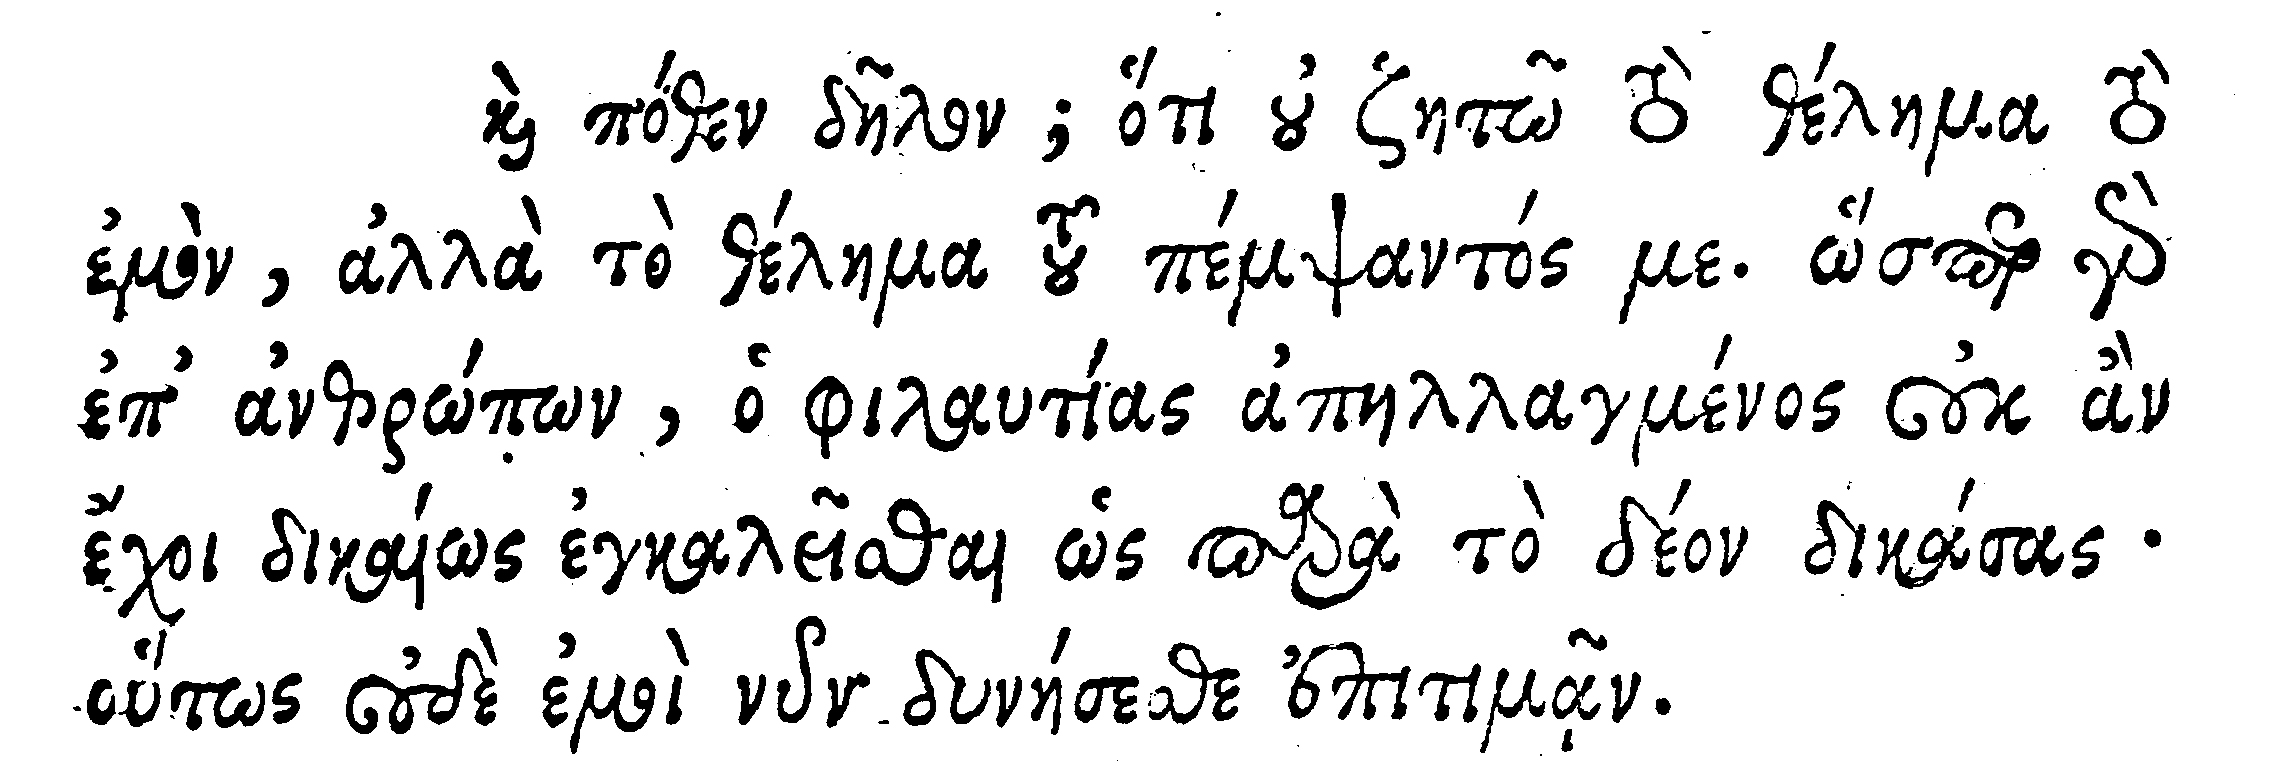 καὶ πόθεν δῆλον; ὅτι οὐ ζητῶ τὸ θέλημα τὸ
ἐμὸν, ἀλλὰ τὸ θέλημα τοῦ πέμψαντός με. ὥσπερ γὰρ
ἐπ' ἀνθρώπων, ὁ φιλαυτίας ἀπηλλαγμένος οὐκ ἂν
ἔχοι δικαίως ἐγκαλεῖσθαι ὡς παρὰ τὸ δέον δικάσας·
οὕτως οὐδὲ ἐμοὶ νῦν δυνήσεσθε ἐπιτιμᾷν.